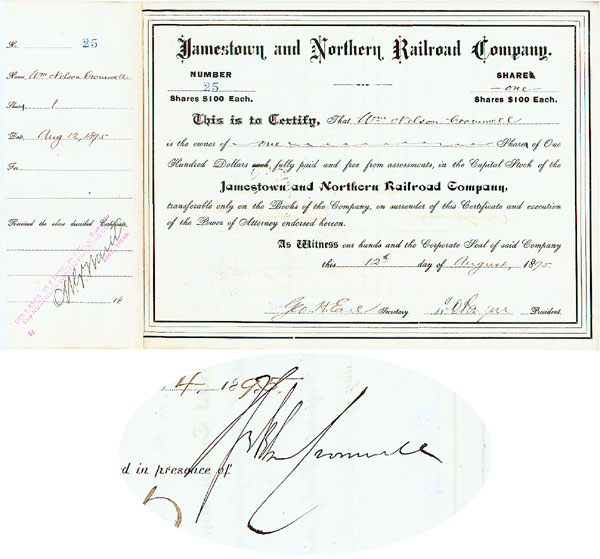 No. 25
Name, Wm Nelson Cromwell
Share, 1
Date, Aug 12, 1895
For
Received the above described Certificate,
18
Jamestown and Northern Railroad Company.
NUMBER
25
Shares $100 Each.
SHARE
one
Shares $100 Each.
This is to Certify, That Wm Nelson Cromwell
is the owner of one Share of One
Hundred Dollars each, fully paid and free from assessments, in the Capital Stock of the
Jamestown and Northern Railroad Company,
transferable only on the Books of the Company, on surrender of this Certificate and execution
of the Power of Attorney endorsed hereon.
As Witness our hands and the Corporate Seal of said Company
this 12th day of August, 1895
Geo. H. Earl Secretary. President.
4. 1895.
Cromwell
d in presence of